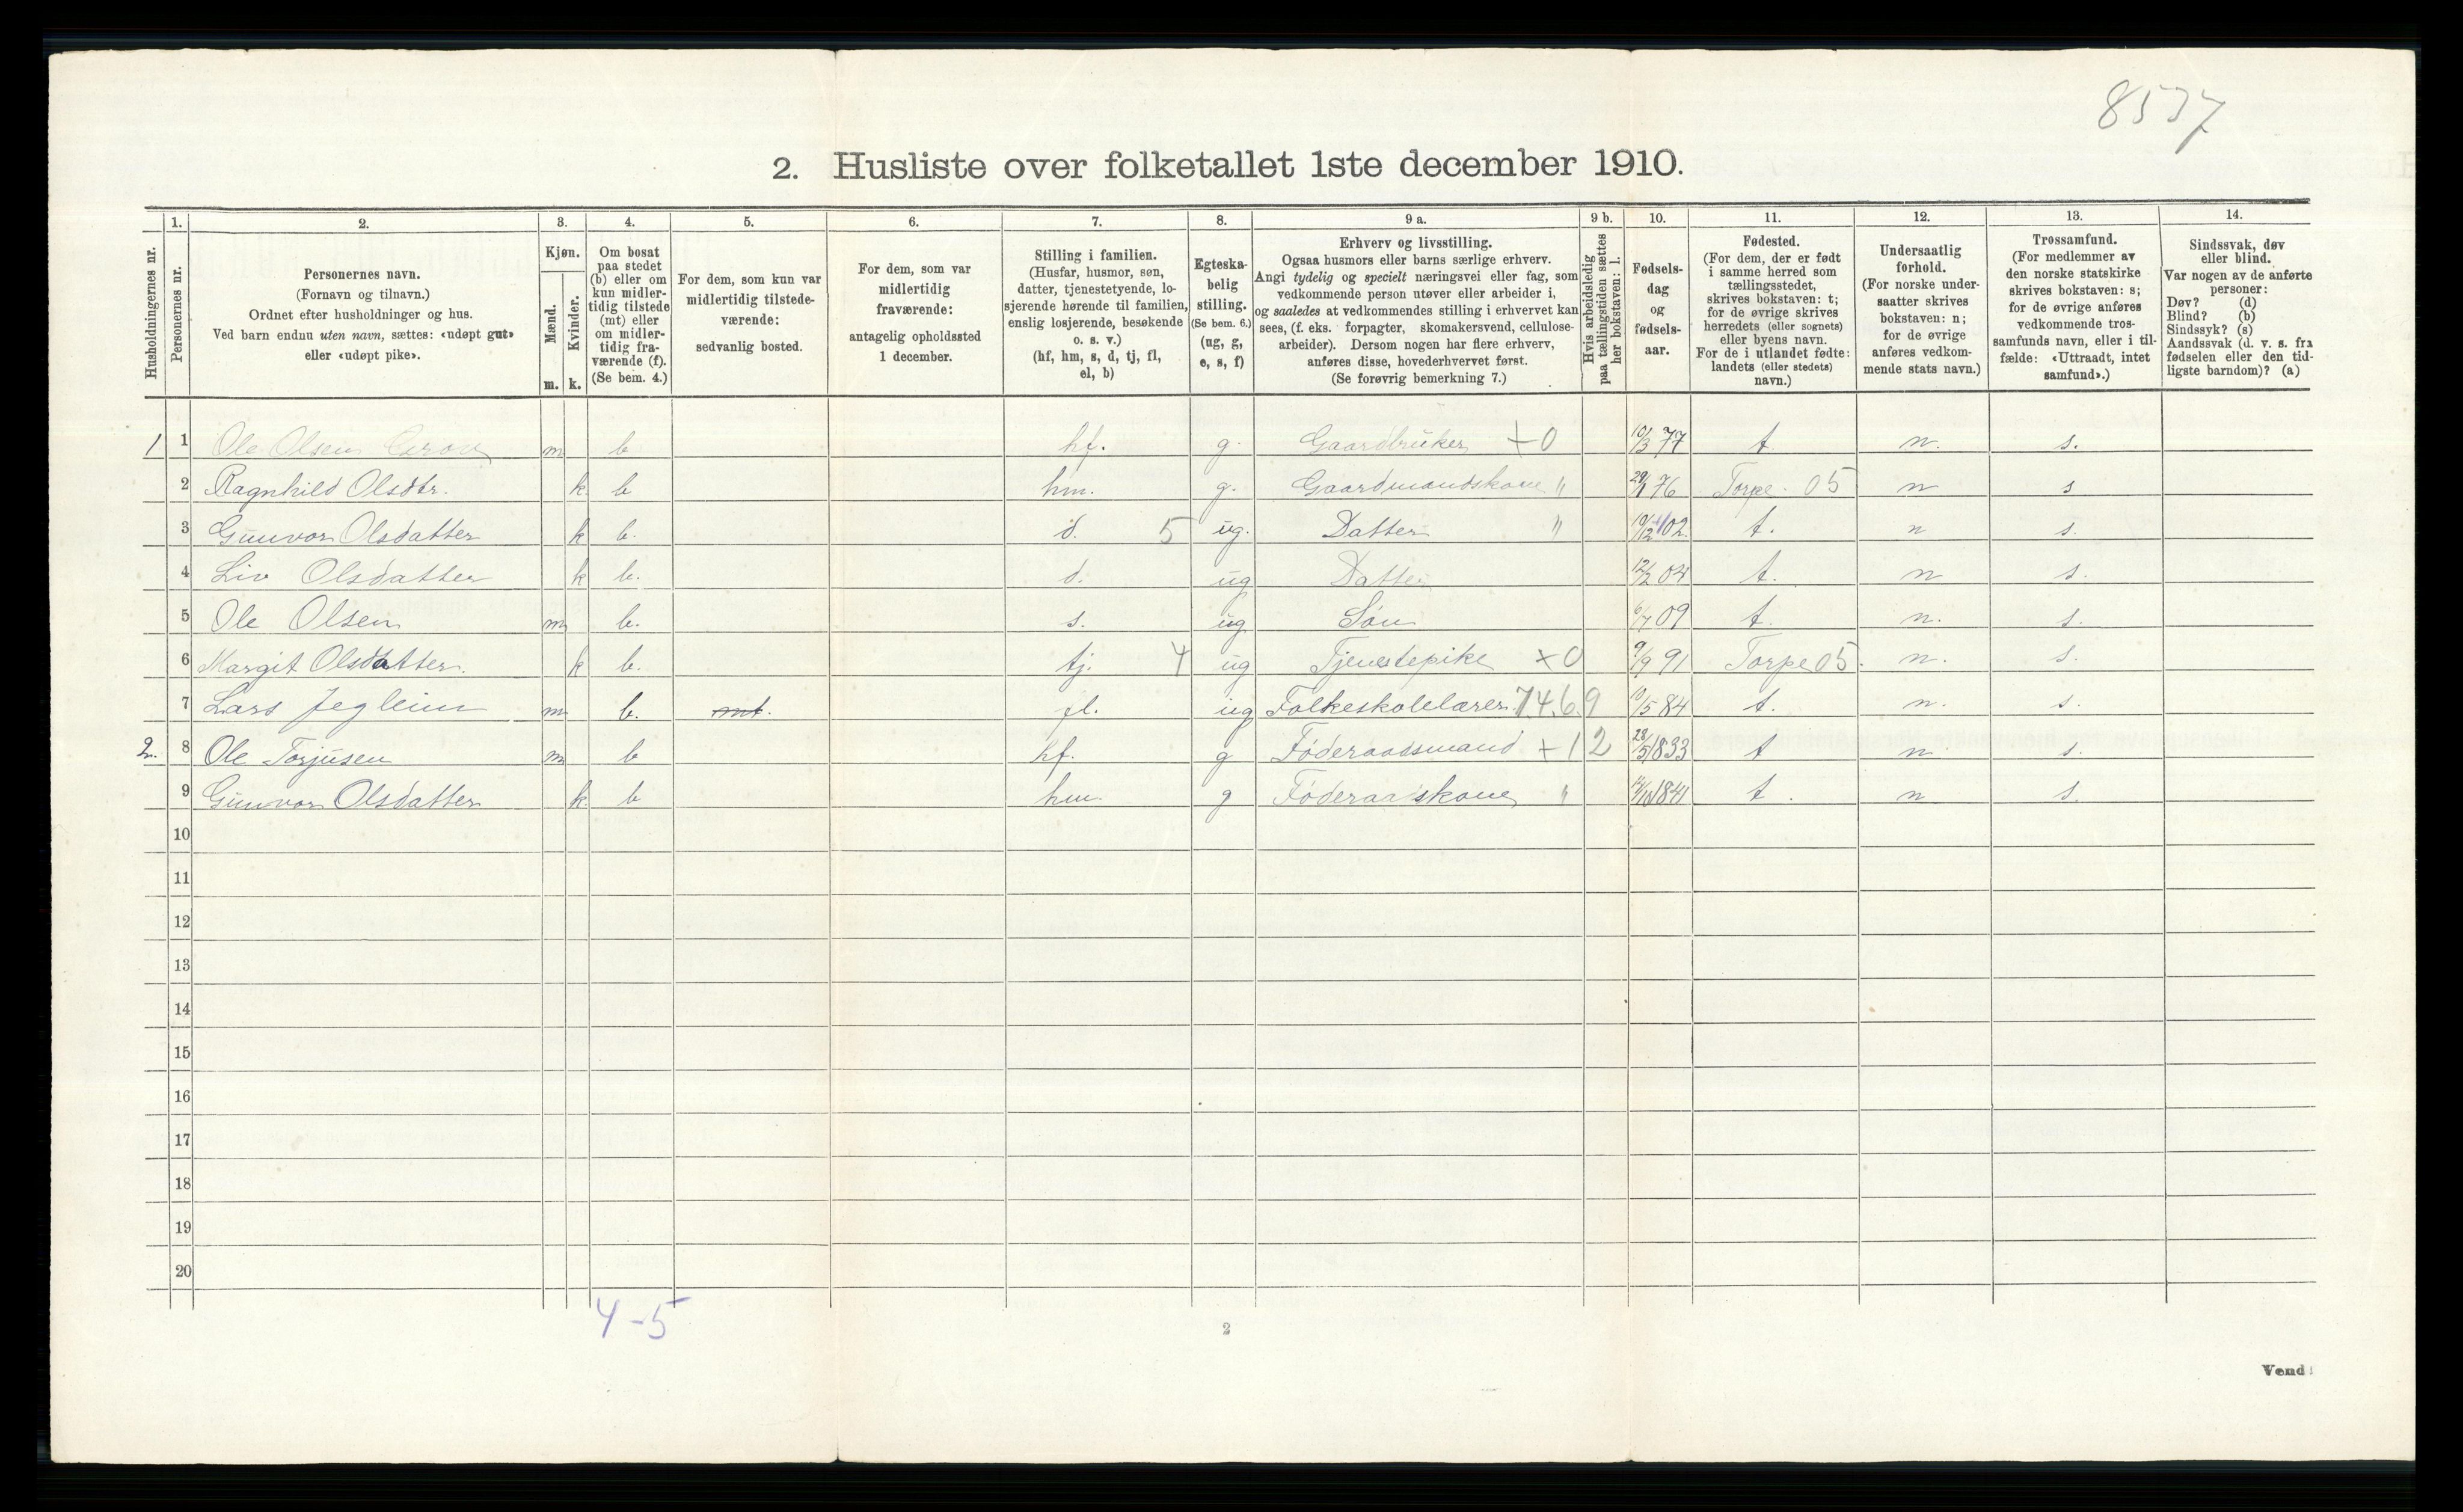 8537
2. Husliste over folketallet 1ste december 1910.
Husholdningernes nr.
1.
Personernes nr.
2.
Personernes navn.
(Fornavn og tilnavn.)
Ordnet efter husholdninger og hus.
Ved barn endnu uten navn, sættes: «udøpt gut»
eller «udøpt pike».
3.
Kjøn.
Mænd.
Kvinder.
m. k.
4.
Om bosat
paa stedet
(b) eller om
kun midler-
tidig tilstede
(mt) eller
om midler-
tidig fra-
værende (f).
(Se bem. 4.)
5.
For dem, som kun var
midlertidig tilstede-
værende:
sedvanlig bosted.
6.
For dem, som var
midlertidig
fraværende:
antagelig opholdssted
1 december.
7.
Stilling i familien.
(Husfar, husmor, søn,
datter, tjenestetyende, lo-
sjerende hørende til familien,
enslig losjerende, besøkende
o. s. v.)
(hf, hm, s, d, tj, fl,
el, b)
8.
Egteska-
belig
stilling.
(Se bem. 6.)
(ug, g,
e, s, f)
9 a.
Erhverv og livsstilling.
Ogsaa husmors eller barns særlige erhverv.
Angi tydelig og specielt næringsvei eller fag, som
vedkommende person utøver eller arbeider i,
og saaledes at vedkommendes stilling i erhvervet kan
sees, (f. eks. forpagter, skomakersvend, cellulose-
arbeider). Dersom nogen har flere erhverv,
anføres disse, hovederhvervet først.
(Se forøvrig bemerkning 7.)
9 b.
Hvis arbeidsledig
paa tællingstiden sættes
her bokstaven: l.
10.
Fødsels-
dag
og
fødsels-
aar.
11.
Fødested.
(For dem, der er født
i samme herred som
tællingsstedet,
skrives bokstaven: t;
for de øvrige skrives
herredets (eller sognets)
eller byens navn.
For de i utlandet fødte:
landets (eller stedets)
navn.)
12.
Undersaatlig
forhold.
(For norske under-
saatter skrives
bokstaven: n;
for de øvrige
anføres vedkom-
mende stats navn.)
13.
Trossamfund.
(For medlemmer av
den norske statskirke
skrives bokstaven: s;
for de øvrige anføres
vedkommende tros-
samfunds navn, eller i til-
fælde: «Uttraadt, intet
samfund».)
14.
Sindssvak, døv
eller blind.
Var nogen av de anførte
personer:
Døv? (d)
Blind? (b)
Sindssyk? (s)
Aandssvak (d. v. s. fra
fødselen eller den tid-
ligste barndom)? (a)
1 1 Ole Olsen Grov m b hf. g. Gaardbruker +0 10/3 77 t n. s.
2 Ragnhild Olsdtr. k b hm. g. Gaardmandskone " 29/1 76 Torpe. 05 n s
3 Gunvor Olsdatter k b. d. 5 ug. Datter " 10/12 02 t. n s.
4 Liv Olsdatter k b. d. ug Datter 12/2 04 t. n s.
5 Ole Olsen m b. s. ug Søn 6/7 09 t. n. s.
6 Margit Olsdatter. k b. tj. 4 ug Tjenestepike x0 9/9 91 Torpe 05. n. s.
7 Lars Jegleim m b. mt. fl. ug Folkeskolelærer. 7.4.6.9 10/5 84 t. n. s.
2. 8 Ole Torjusen m b hf. g Føderaadsmand +12 28/5 1833 t n s.
9 Gunvor Olsdatter k b hm g Føderaaskone " 14/10 1841 t. n s.
10
11
12
13
14
15
16
17
18
19
20
4-5
2
Vend!